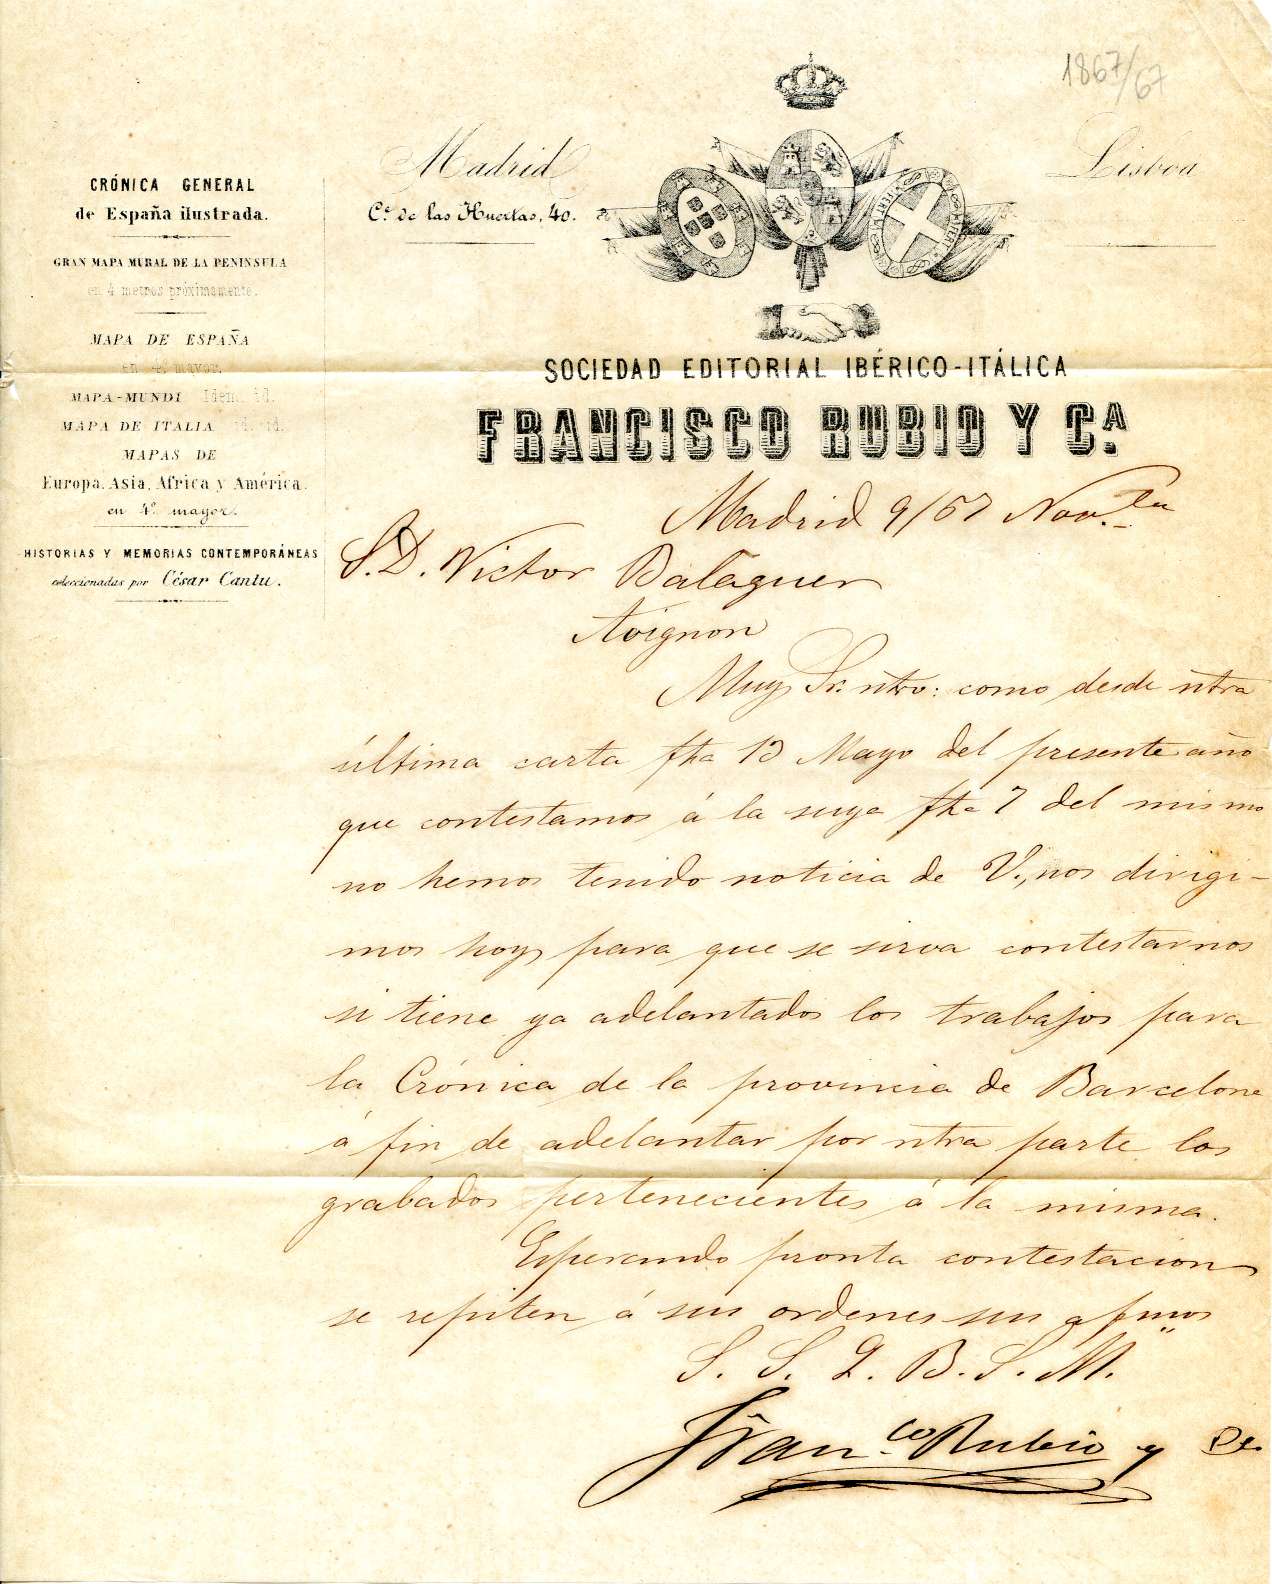 1867/67
CRÓNICA GENERAL
de España ilustrada.
GRAN MAPA MURAL DE LA PENINSULA
en 4 metros próximamente.
MAPA DE ESPAÑA
en 4º mayor.
MAPA-MUNDI Idem. id.
MAPA DE ITALIA id. id.
MAPAS DE
Europa. Asia, Africa y América.
en 4º mayor.
HISTORIAS Y MEMORIAS CONTEMPORÁNEAS
coleccionadas por César Cantu.
Madrid
C.e de las Huertas, 40.
Lisboa
SOCIEDAD EDITORIAL IBÉRICO-ITÁLICA
FRANCISCO RUBIO Y C.A
Madrid 9/67 Nov.bre
S.D. Victor Balaguer
Avignon
Muy Sr. ntro: como desde ntra
última carta fha 13 Mayo del presente año
que contestamos á la suya fha 7 del mismo
no hemos tenido noticia de V., nos dirigi-
mos hoy para que se sirva contestarnos
si tiene ya adelantados los trabajos para
la Crónica de la provincia de Barcelona
á fin de adelantar por ntra parte los
grabados pertenecientes á la misma.
Esperando pronta contestacion
se repiten á sus ordenes sus afmos
S. S. Q. B. S. M.
Fran.co Rubio y Ca